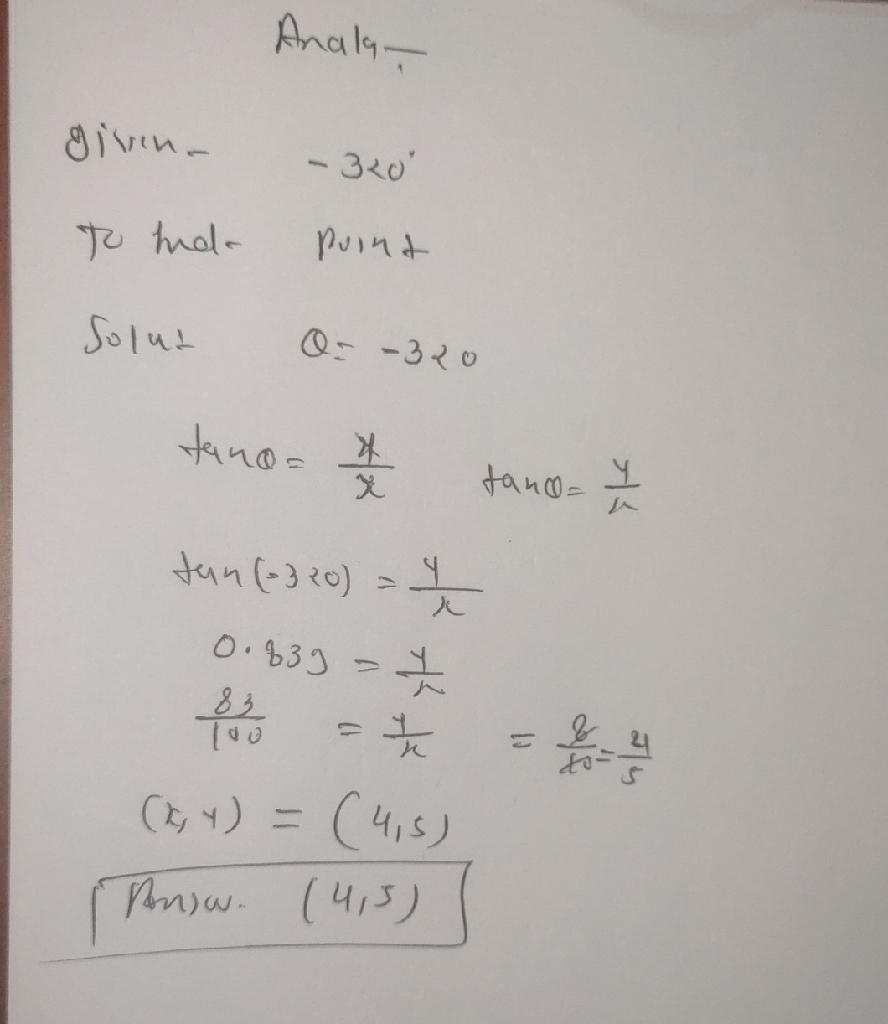 Analy
given - -320°
To find - point
Solut θ = -320
tanθ = y/x tanθ = y/x
tan(-320) = y/x
0.839 = y/x
83/100 = y/x = 8/10 = 4/5
(x, y) = (4,5)
Answ. (4,5)